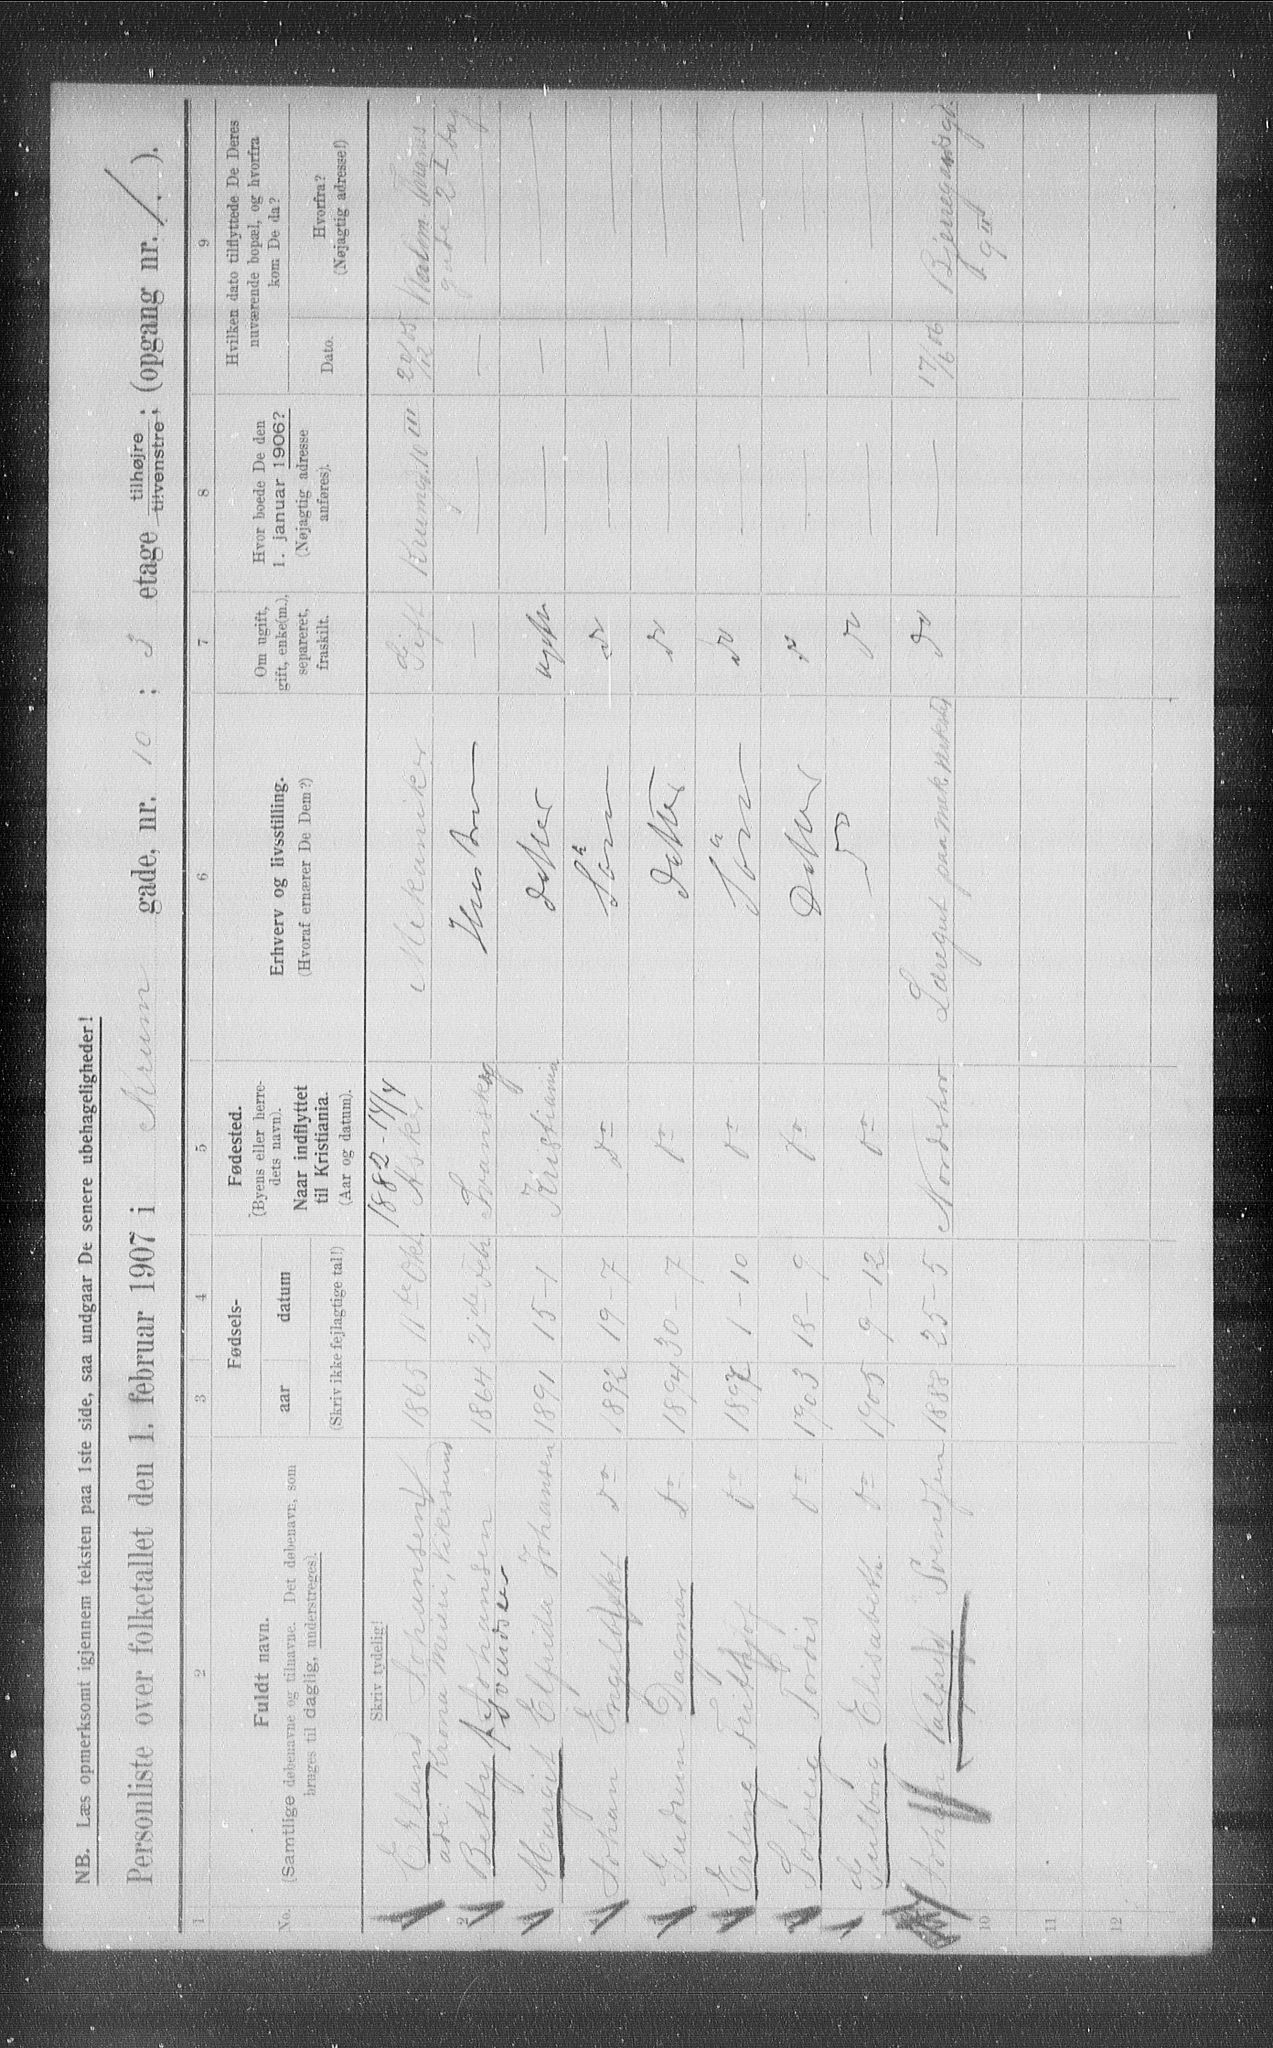 NB. Læs opmerksomt igjennem teksten paa 1ste side, saa undgaar De senere ubehageligheder!
Personliste over folketallet den 1. februar 1907 i Krum gade, nr. 10 ; 3 etage tilhøjre ; tilvenstre ; (opgang nr. 1. ).
1 2 3 4 5 6 7 8 9
No.
Fuldt navn.
(Samtlige døbenavne og tilnavne. Det døbenavn, som
bruges til daglig, understreges).
Skriv tydelig!
Fødsels-
aar datum
(Skriv ikke fejlagtige tal!)
Fødested.
(Byens eller herre-
dets navn).
Naar indflyttet
til Kristiania.
(Aar og datum).
Erhverv og livsstilling.
(Hvoraf ernærer De Dem?)
Om ugift,
gift, enke(m.),
separeret,
fraskilt.
Hvor boede De den
1. januar 1906?
(Nøjagtig adresse
anføres).
Hvilken dato tilflyttede De Deres
nuværende bopæl, og hvorfra
kom De da?
Dato.
Hvorfra?
(Nøjagtig adresse!)
1882 - 14/4
Johansen 1865 11te Okt. Asker Mekaniker Gift Krumgd. 10 III 20/12 05
adr:
2 Betty Johansen 1864 21de Svanskog Hustru — — — —
Margit Elfrida Johansen 1891 15 - 1 Kristiania datter ugift — — —
Johan do 1892 19 - 7 do Søn do — — —
Gudrun Dagmar do 1894 30 - 7 do datter do — — —
Erling Frithjof do 1897 1 - 10 do Søn do — — —
Solveig Tordis do 1903 18 - 9 do Datter do — — —
Gulborg Elisabeth do 1905 9 - 12 do do do — — —
Johan Svendsen 1888 25 - 5 Læregut paa mek. do — 17/6 06
10
11
12